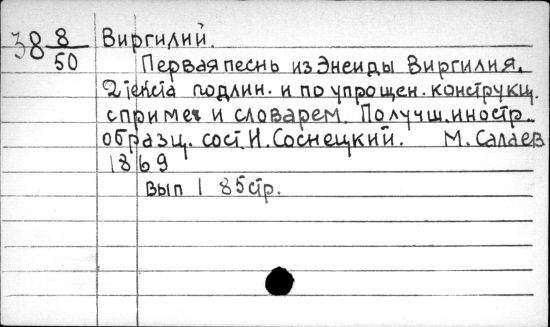 38 8/50 Виргилий.
Первая песнь из Энеиды Виргилия.
2 текста подлин. и по упрощен. конструкц.
с примеч и словарем. По лучш. иностр.
образц. сост. И. Соснецкий. М. Салаев
1869
Вып 1 85 стр.